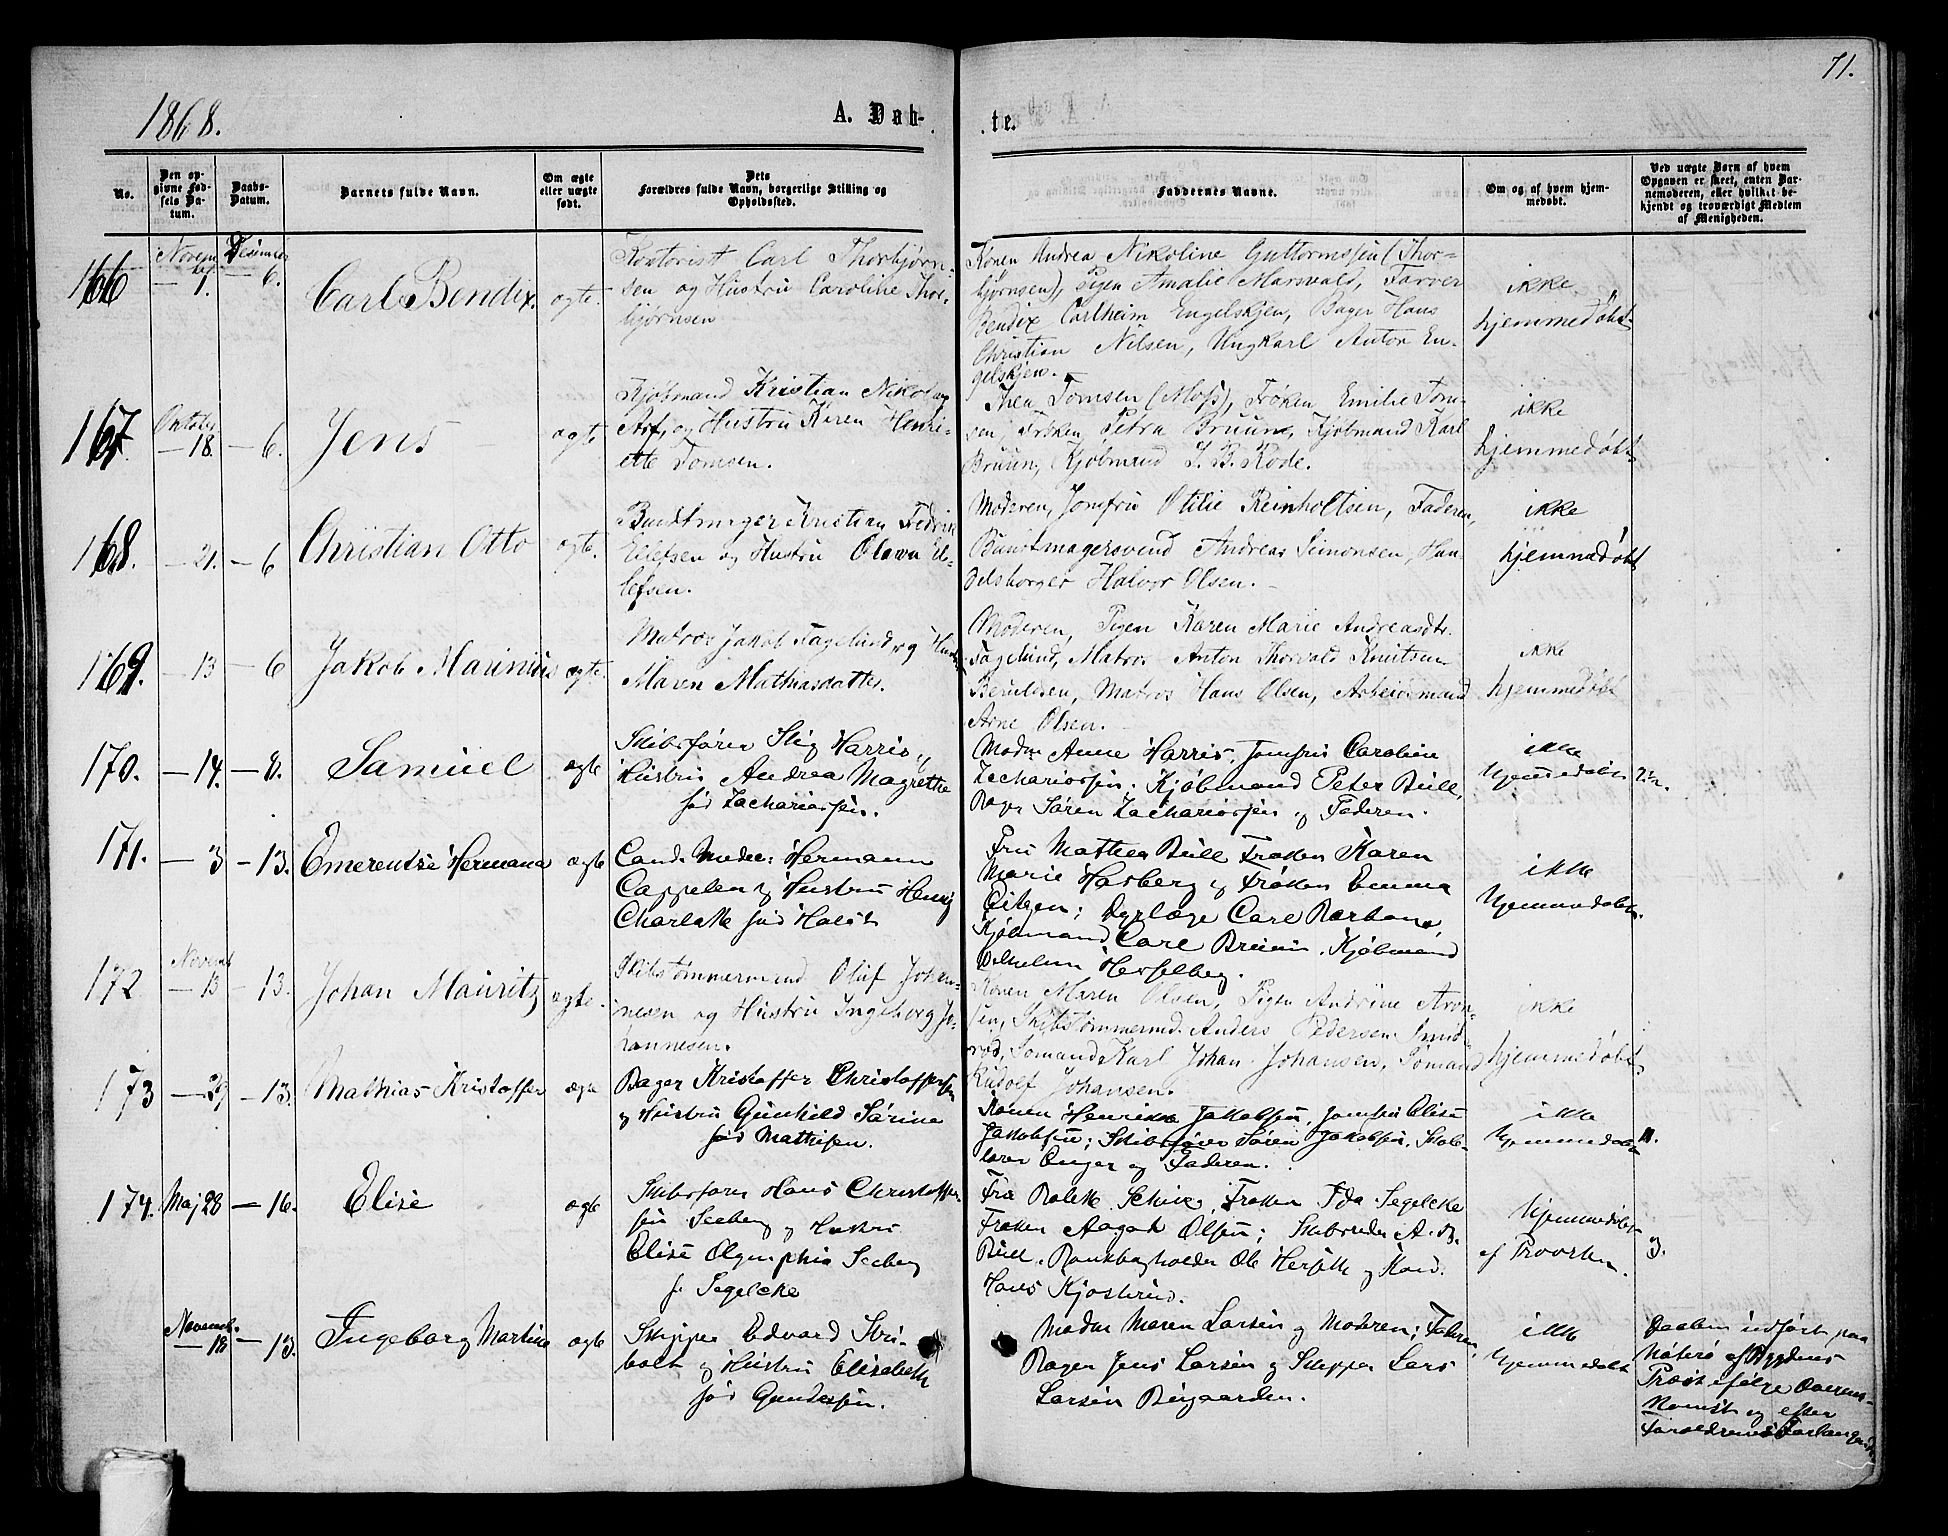 71.
1868.
A. Døb-
te.
No.
Den op-
givne Fød-
sels Da-
tum.
Daabs-
Datum.
Barnets fulde Navn.
Om ægte
eller uægte
født.
Dets
Forældres fulde Navn, borgerlige Stilling og
Opholdssted.
Faddernes Navne.
Om og af hvem hjem-
medøbt.
Ved uægte Børn af hvem
Opgaven er skeet, enten Bar-
nemoderen, eller hvilket be-
kjendt og troværdigt Medlem
af Menigheden.
166
Novem
— 1.
Desember
— 6.
Carl Bendix.
ægte.
Kontorist Carl Thorbjørn-
sen og Hustru Caroline Thor-
bjørnsen
Konen Andrea Nikoline Guttormssen (Thor-
bjørnsen), Pigen Amalie Marsvald, Farver
Bendix Carlheim Engelskjen, Bager Hans
Christian Nilsen, Ungkarl Anton En-
gelskjen.
ikke
hjemmedøbt
167
Oktober
— 18.
— 6.
Jens
ægte
Kjøbmand Kristian Nikolay
og Hustru Karen Henri-
ette Tomsen.
Thea Tomsen (Moss), Frøken Emilie Tom-
sen, Frøken Petra Bruun, Kjøbmand Karl
Bruun, Kjøbmand J. B. Rode.
ikke
hjemmedøbt
168.
— 21.
— 6
Christian Otto
ægte.
Bundtmager Kristian Fredrik
Ellefsen og Hustru Olava El-
lefsen.
Moderen, Jomfru Otilie Reinholtsen, Faderen,
Buntmagersvend Andreas Simonsen, Han-
delsborger Halvor Olsen.
ikke
hjemmedøbt
169.
— 13
— 6
Jakob Marinius
ægte.
Matros Jakob Fagelund og Hust
Maren Mathiasdatter.
Moderen, Pigen Karen Marie Andreasdtr.
Fagelund, Matros Anton Thorvald Knutsen
Beruldsen, Matros Hans Olsen, Arbeidsmand
Arne Olsen.
ikke
hjemmedøbt
170.
— 14.
— 8.
Samuel
ægte
Skibsfører Stig Harris,
Hustru Andrea Magrethe
fød Zachariassen.
Madm Anne Harris, Jomfru Caroline
Zachariassen; Kjøbmand Peter Bull,
Bager Søren Zachariassen og Faderen.
ikke
hjemmedøbt
171.
— 3
— 13.
Emerentse Hermana
ægte
Cand. Medic: Hermann
Cappelen og Hustru Henny
Charlotte fød Holst
Fru Mathea Bull Frøken Karen
Marie Hasberg og Frøken Emma
Dyrlæge Carl
Kjøbmand Carl Bruun. Kjøbmand
Vilhelm Hesselberg.
ikke
hjemmedøbt.
172
Novemb
— 13
— 13.
Johan Mauritz
ægte.
Skibstømmermand Oluf Johan-
nesen og Hustru Ingeborg Jo-
hannesen.
Konen Maren Olsen, Pigen Andrine Aron-
sen, Skibstømmermd. Anders Pedersen Smid-
rød, Sømand Karl Johan Johansen, Sømand
Rudolf Johansen.
ikke
hjemmedøbt
173
— 29
— 13.
Mathias Kristoffer
ægte
Bager Kristoffer Christoffersen
og Hustru Gunhild Sørine
fød Mathisen.
Konen Henrikke Jakobsen, Jomfru Elise
Jakobsen; Skibsfører Søren Jakobsen. Skole-
lærer Unger og Faderen.
ikke
hjemmedøbt
174.
Maj 28
— 16.
Elise
ægte
Skibsfører Hans Christoffer-
sen Seeberg og Hustru
Elise Olymphia Seeberg
f. Segelcke
Fru Bolette Schive, Frøken Ida Segelcke
Frøken Aagot Olsen; Skibsreder A. B.
Bull. Bankbogholder Ole Hersetth og Kand.
Hans Kjøstrud.
hjemmedøbt
af Provsten.
3.
Novemb.
— 18
— 13.
Ingeborg Martine
ægte
Skipper Edvard Stri-
bolt og Hustru Elisabeth
fød Gundersen.
Madm Maren Larsen og Moderen; Faderen,
Bager Jens Larsen og Skipper Lars
Larsen Bugaarden.
ikke
hjemmedøbt
Daaben udført paa
Nøterø af Bygdens
Præst ifølge
og efter
Forældrenes Forlangende